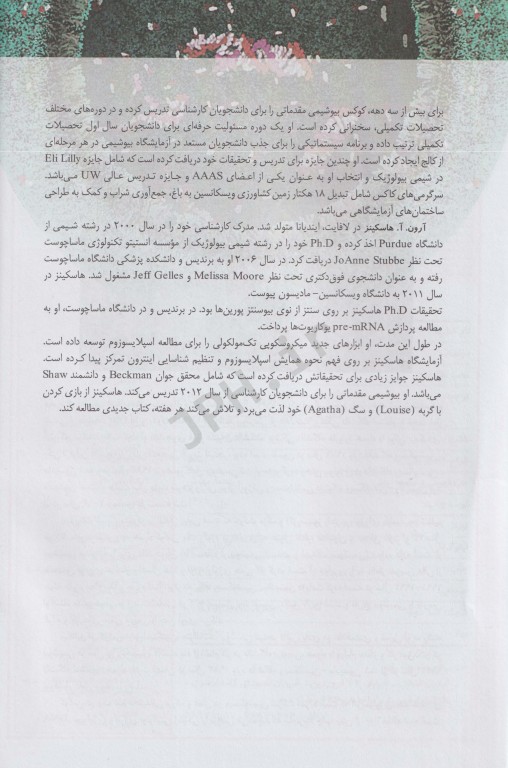 برای بیش از سه دهه، کوکس بیوشیمی مقدماتی را برای دانشجویان کارشناسی تدریس کرده و در دوره‌های مختلف
تحصیلات تکمیلی، سخنرانی کرده است. او یک دوره مسئولیت حرفه‌ای برای دانشجویان سال اول تحصیلات
تکمیلی ترتیب داده و برنامه سیستماتیکی را برای جذب دانشجویان مستعد در آزمایشگاه بیوشیمی در هر مرحله‌ای
از کالج ایجاد کرده است. او چندین جایزه برای تدریس و تحقیقات خود دریافت کرده است که شامل جایزه Eli Lilly
در شیمی بیولوژیک و انتخاب او به عنوان یکی از اعضای AAAS و جایزه تدریس عالی UW می‌باشد.
سرگرمی‌های کاکس شامل تبدیل ۱۸ هکتار زمین کشاورزی ویسکانسین به باغ، جمع‌آوری شراب و کمک به طراحی
ساختمان‌های آزمایشگاهی می‌باشد.
آرون. آ. هاسکینز در لافایت، ایندیانا متولد شد. مدرک کارشناسی خود را در سال ۲۰۰۰ در رشته شیمی از
دانشگاه Purdue اخذ کرده و Ph.D خود را در رشته شیمی بیولوژیک از مؤسسه انستیتو تکنولوژی ماساچوست
تحت نظر JoAnne Stubbe دریافت کرد. در سال ۲۰۰۶ او به برندیس و دانشکده پزشکی دانشگاه ماساچوست
رفته و به عنوان دانشجوی فوق‌دکتری تحت نظر Melissa Moore و Jeff Gelles مشغول شد. هاسکینز در
سال ۲۰۱۱ به دانشگاه ویسکانسین- مادیسون پیوست.
تحقیقات Ph.D هاسکینز بر روی سنتز از نوی بیوسنتز پورین‌ها بود. در برندیس و در دانشگاه ماساچوست، او به
مطالعه پردازش pre-mRNA یوکاریوت‌ها پرداخت.
در طول این مدت، او ابزارهای جدید میکروسکوپی تک‌مولکولی را برای مطالعه اسپلایسوزوم توسعه داده است.
آزمایشگاه هاسکینز بر روی فهم نحوه همایش اسپلایسوزوم و تنظیم شناسایی اینترون تمرکز پیدا کرده است.
هاسکینز جوایز زیادی برای تحقیقاتش دریافت کرده است که شامل محقق جوان Beckman و دانشمند Shaw
می‌باشد. او بیوشیمی مقدماتی را برای دانشجویان کارشناسی از سال ۲۰۱۲ تدریس می‌کند. هاسکینز از بازی کردن
با گربه (Louise) و سگ (Agatha) خود لذت می‌برد و تلاش می‌کند هر هفته، کتاب جدیدی مطالعه کند.